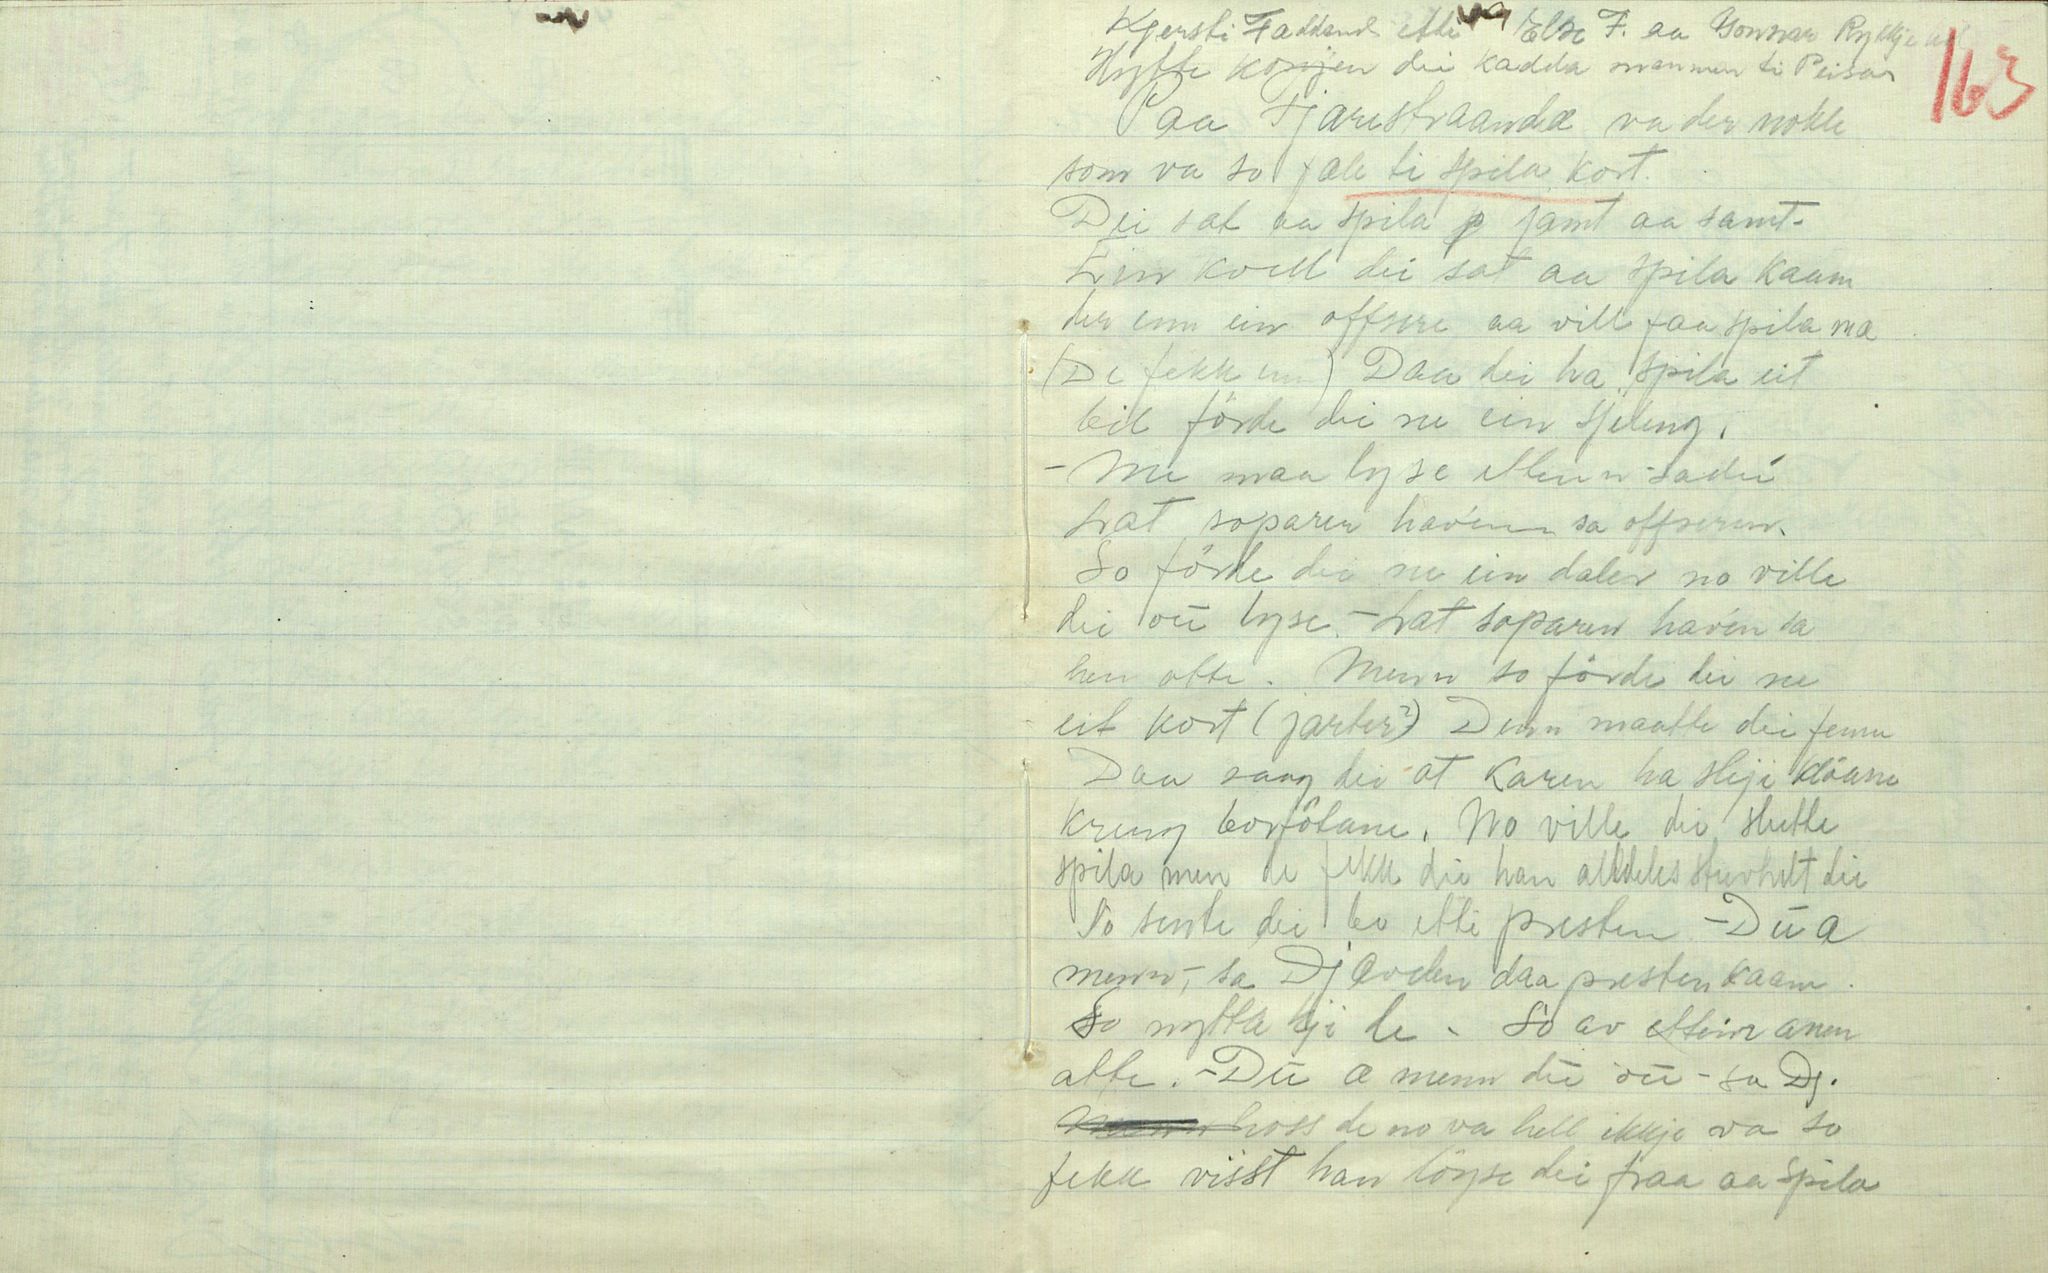 Kjersti Faddand etti Else F. aa Gonnar Rykkje
Hytte konjen dei kadda mannen ti Peisar
163
Paa Fjarestraandæ va der nokle
som va so fæle ti spila kort.
Dei sat aa spila jamt aa samt.
Ein kvell dei sat aa spila kaam
der enn ein offsere aa vill faa spila mæ
(De fekk enn) Daa dei ha spila eit
bil förde dei ne ein sjeling.
- Me maa lyse ettenn - sa dei
Lat soparen hav'enn sa offseren.
So förde dei ne ein daler no ville
dei ou lyse. - Lat soparen hav'en sa
hen atte. Menn so förde dei ne
eit kort (jarter?) Denn maatte dei fenn
Daa saag dei at Karen ha sleji klöane
kreng borfötane. No ville dei slutte
spila men de fekk dei han alldeles stuvhelt dei
So sente dei bo etti presten - Du æ
menn, - sa Djævelen daa presten kaam.
So nytta kji de. So av ettein anen
atte. - Du æ menn du ou - sa Dj.
hoss de no va hell ikkje va so
fekk visst han löyse dei fraa aa spila